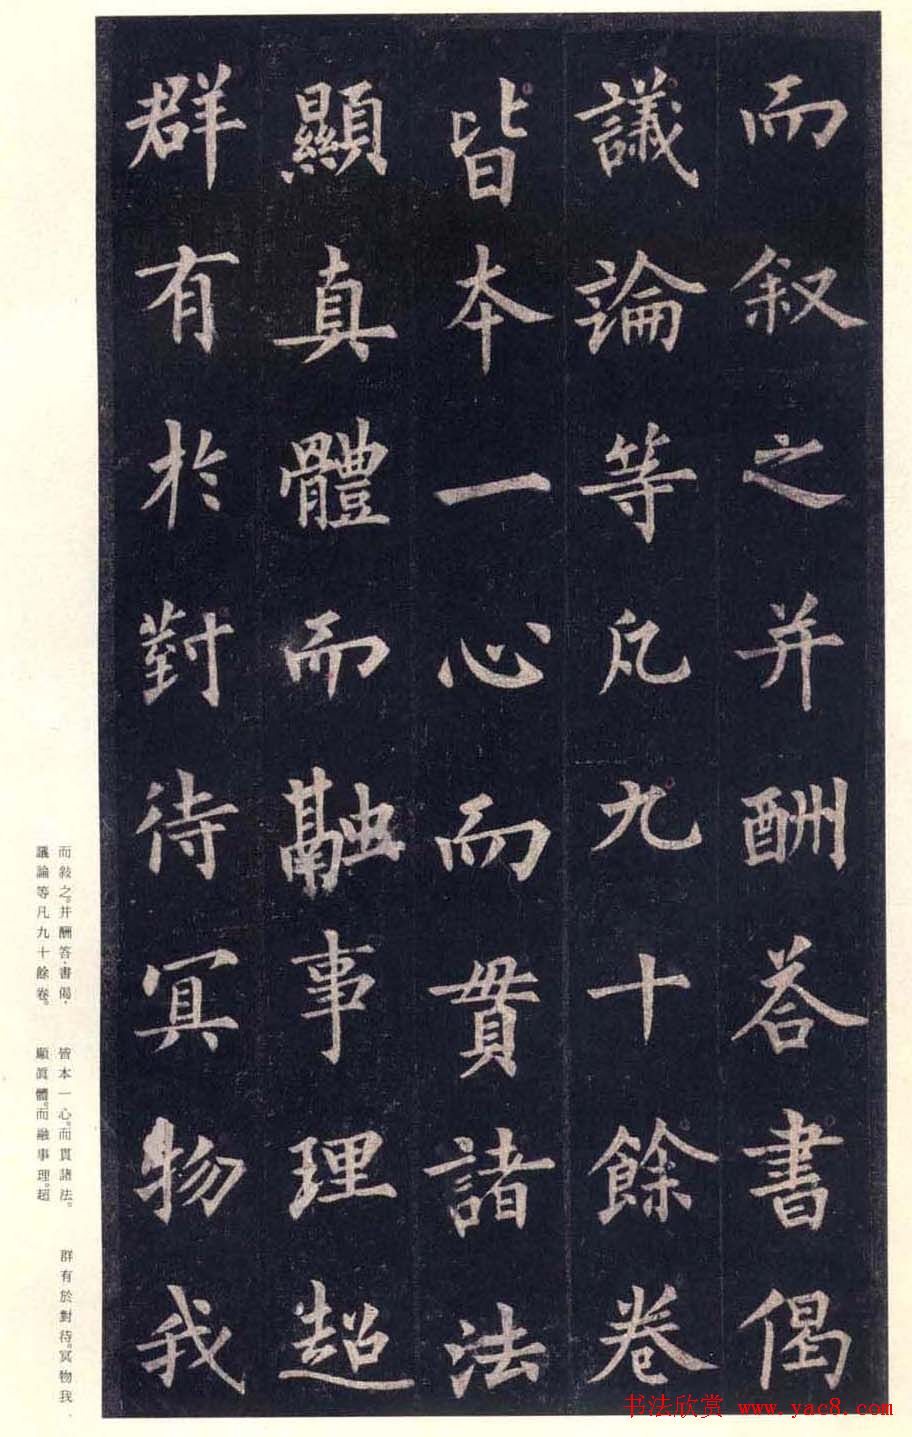 而叙之并酬荅書偈
議論等凡九十餘卷
皆本一心而貫諸法
顯真體而融事理超
群有於對待冥物我
而敍之。并酬答·書偈·
議論等凡九十餘卷。
皆本一心。而貫諸法。
顯眞體。而融事理。超
群有於對待。冥物我·
书法欣赏 www.yac8.com